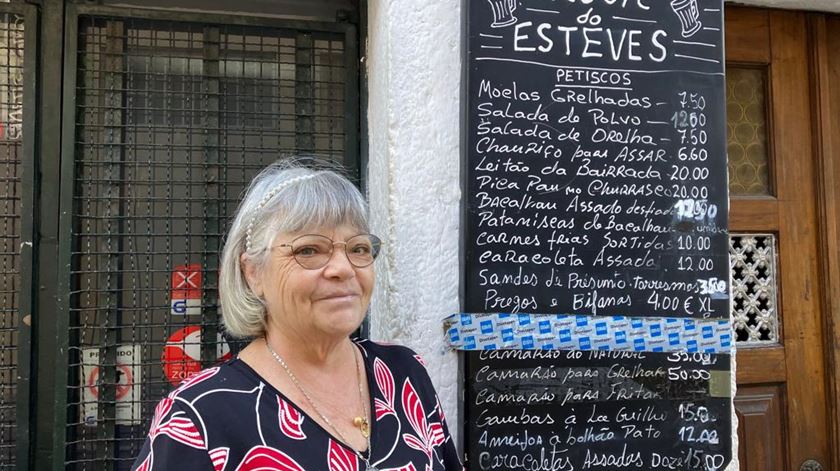 do
ESTEVES
PETISCOS
Moelas Grelhadas - 7.50
Salada de Polvo - 12.50
Salada de Orelha - 7.50
Chouriço para Assar 6.60
Leitão da Bairrada 20.00
Pica Pau no Churrasco 20.00
Bacalhau Assado desfiado 12.50
Pataniscas de Bacalhau
Carnes frias Sortidas 10.00
Caracoleta Assada 12.00
Sandes de Presunto torresmos
Pregos e Bifanas 4.00€ XL
Camarão ao Natural 35.00
Camarão para Grelhar 50.00
Camarão para Fritar
Gambas à La Guilho 15.0
Ameijoas à bolhão Pato 12.00
Caracoletas Assadas Doze 15.0